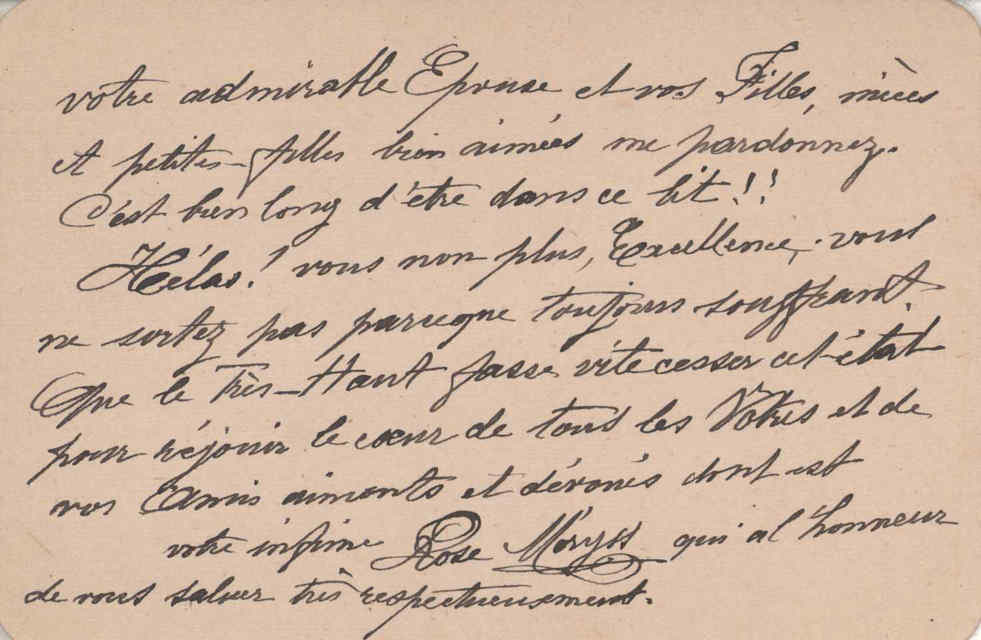 votre admirable Epouse et vos Filles, nièces
et petites-filles bien aimées me pardonnez.
C'est bien long d'être dans ce lit!!
Hélas! vous non plus, Excellence, vous
ne sortez pas parceque toujours souffrant.
Que le Très-Haut fasse vite cesser cet état
pour réjouir le cœur de tous les Vôtres et de
vos Amis aimants et dévoués dont est
votre infime Rose qui a l'honneur
de vous saluer très respectueusement.